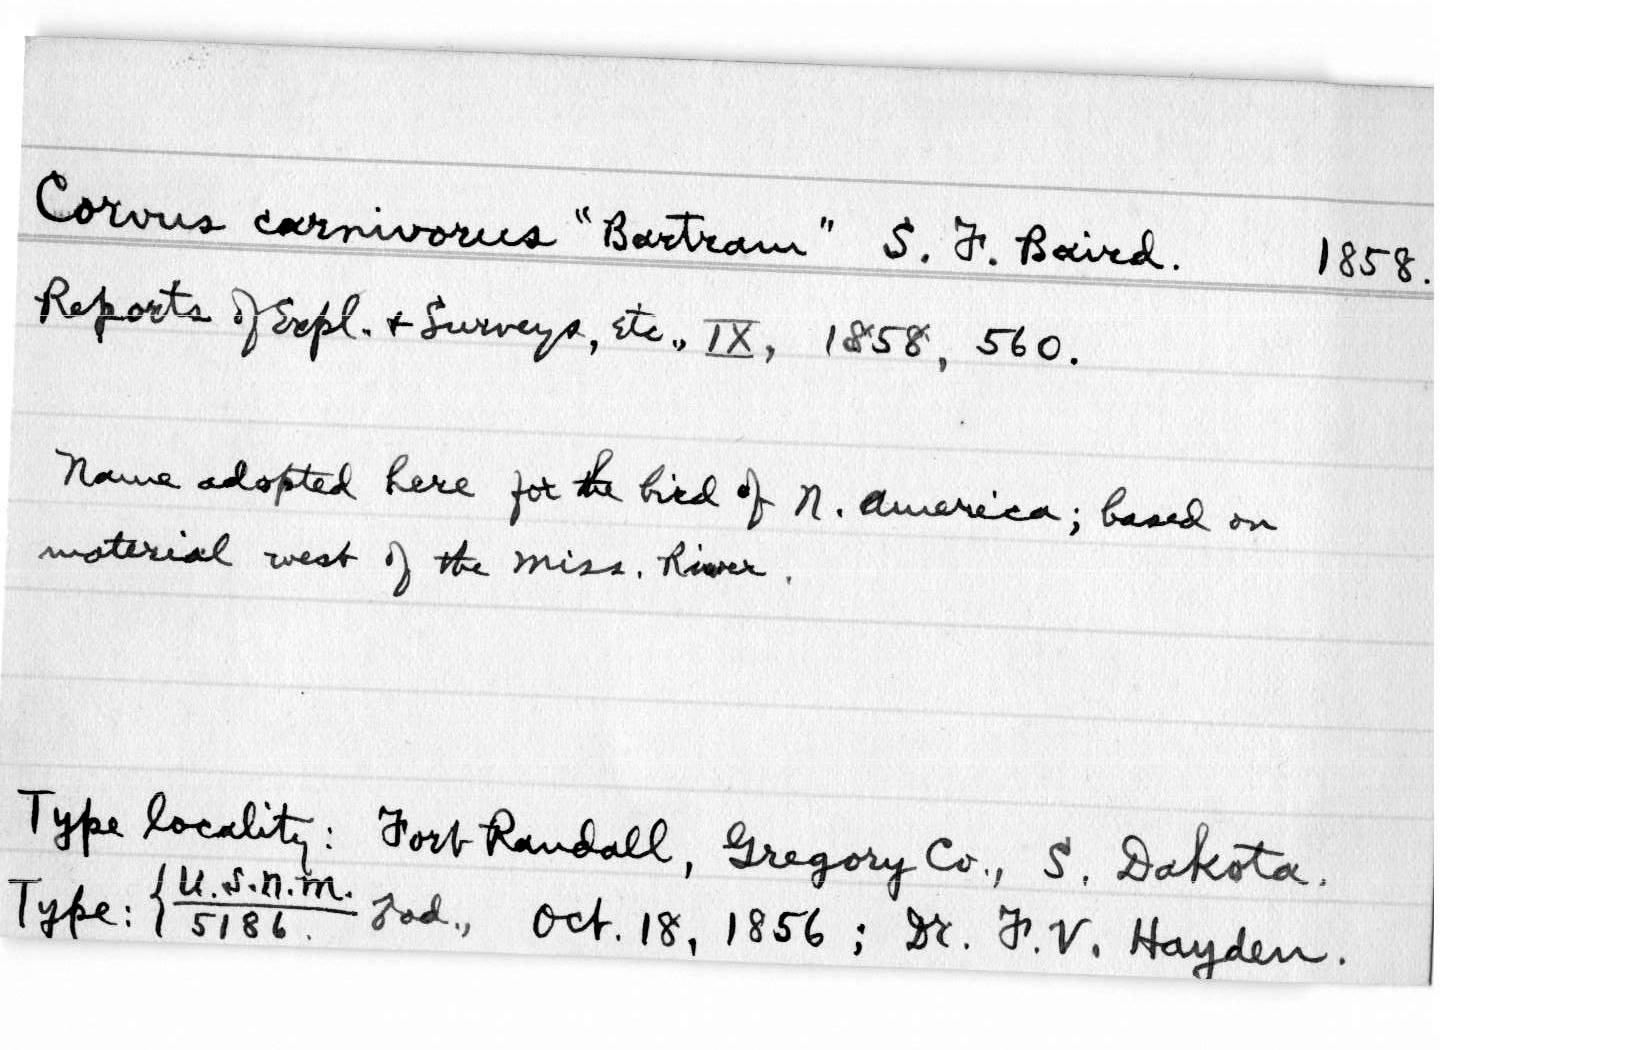 Corvus carnivorus "Bartram" S. F. Baird. 1858.
Reports of Expl. + Surveys, etc., IX, 1858, 560.
Name adopted here for the bird of N. America; based on
material west of the Miss. River.
Type locality: Fort Randall, Gregory Co., S. Dakota.
Type: { U.S.N.M.
5186. ad., Oct. 18, 1856; Dr. F. V. Hayden.